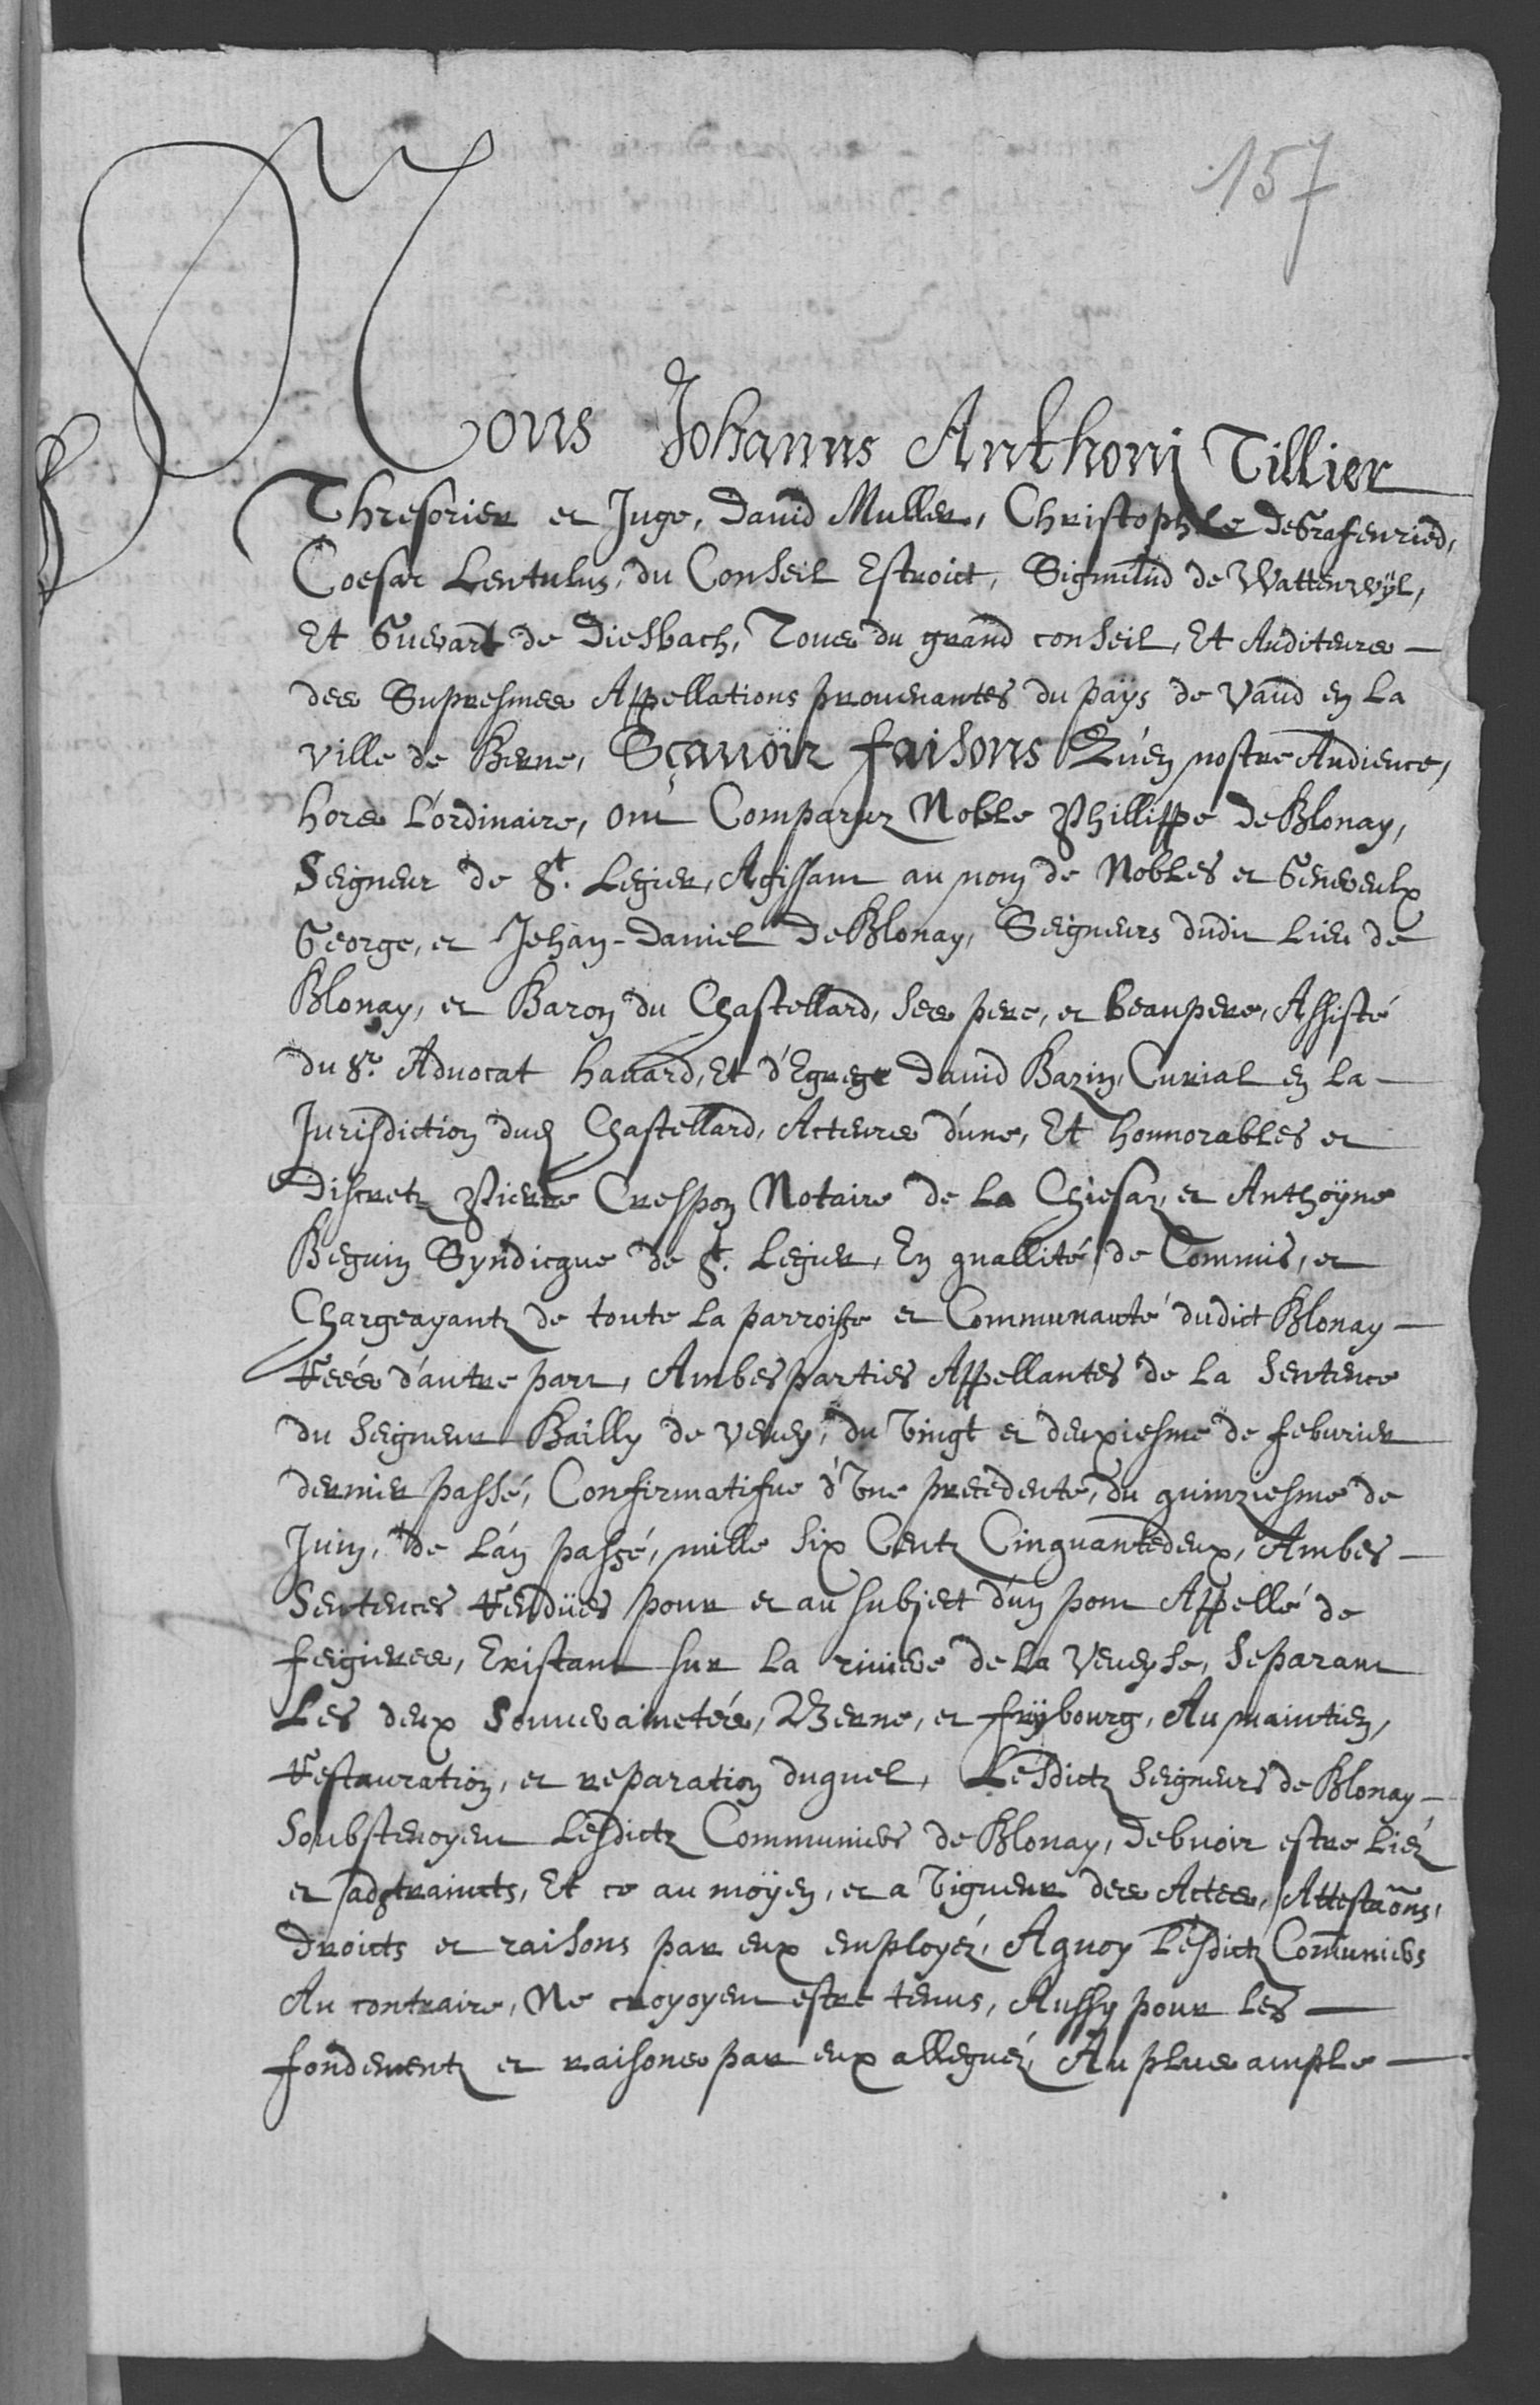 157
Nous Johanns Anthoni Tillier
Thresorier et Juge, David Muller, Christophle de Grafenried,
Coesar Lentulus, du Conseil Estroict, Sigmund de Wattenwÿl,
Et Guevart de Diesbach, Tous du grand conseil, Et Auditeurs
des Supresmes Appellations provenantes du paÿs de Vaud en la
ville de Berne, Sçavoir faisons Qu'en nostre Audience,
hors l'ordinaire, ont Comparuz Noble Phillippe de Blonay,
Seigneur de St. Legier, Agissant au nom de Nobles et Genereulx
George, et Jehan-Daniel de Blonay, Seigneurs dudit Lieu de
Blonay, et Baron du Chastellard, ses pere, et beaupere, Assisté
du Sr. Advocat havard, Et d'Egrege David Bazin, Curial en la
Jurisdiction dud Chastellard, Acteurs d'une, Et honnorables et
Discretz Pierre Crespon Notaire de la Chiesaz, et Anthoÿne
Beguin Syndicque de St. Legier, En quallité de Commis, et
Chargeayantz de toute la parroisse et Communauté dudict Blonay
Reés d'autre part, Ambes parties Appellantes de la Sentence
du Seigneur Bailly de Vevey, du Vingt et deuxiesme de febvrier
dernier passé, Confirmatifve d'Vne precedente, du quinziesme de
Juin, de l'an passé, mille six Centz Cinquantedeux, Ambes
Sentences Rendües pour et au subject d'un pont Appellé de
feigieres, Existant sur la riviere de la Veveyse, Separant
Les deux Souverainetés, Berne, et frÿbourg, Au maintien,
Restauration, et reparation duquel, Lesdictz Seigneurs de Blonay
Soubstenoyent Lesdictz Communiers de Blonay, debvoir estre liéz
et adstraincts, Et ce au moÿen, et a Vigueur des Actes, Attestaõns,
Droicts et raisons par eux employéz, Aquoy Lesdictz Comuniers
Au contraire, Ne croyoyent estre tenus, Aussy pour les
fondementz et raisons par eux alleguéz, Au plus ample